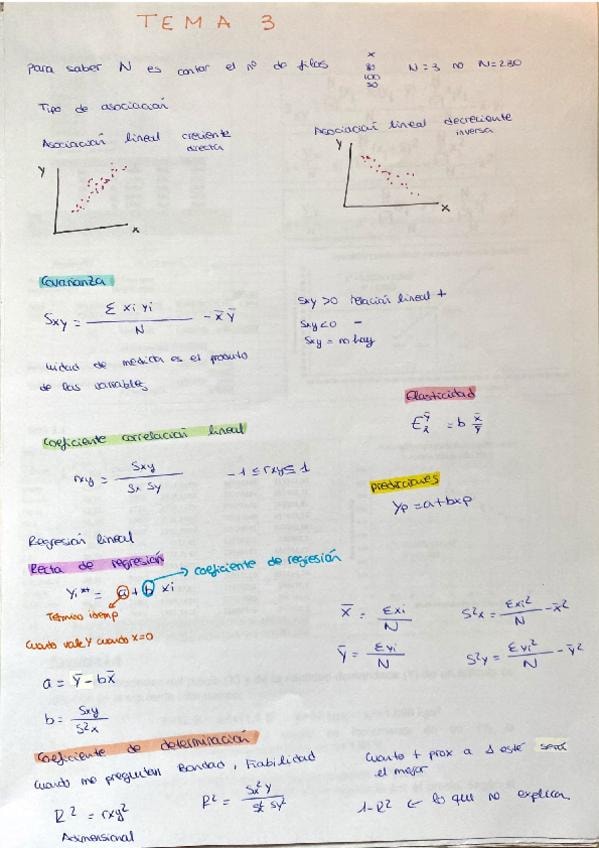 TEMA 3
Para saber N es contar el nº de filas
x
80
100
50
N=3 no N=230
Tipo de asociación
Asociación lineal creciente
directa
Asociación lineal decreciente
inversa
Y
X
Y
X
Covarianza
Sxy = Σ xi yi / N - x̄ ȳ
Sxy > 0 relación lineal +
Sxy < 0 -
Sxy = no hay
Unidad de medida es el producto
de las variables
Elasticidad
b x̄/ȳ
Coeficiente correlación lineal
rxy = Sxy / Sx Sy
-1 ≤ rxy ≤ 1
Predicciones
Yp = a+bxp
Regresión lineal
Recta de regresión
Yi* = a + b xi
coeficiente de regresión
Término
Cuanto vale Y cuando X=0
X̄ = Σxi / N
S²x = Σxi² / N - x̄²
Ȳ = Σyi / N
S²y = Σyi² / N - ȳ²
a = Ȳ - bX̄
b = Sxy / S²x
Coeficiente de determinación
Cuando me preguntan Bondad, Fiabilidad
Cuanto + prox a 1 esté será
el mejor
R² = rxy²
R² = Sx²y / Sx² Sy²
1-R² ← lo que no explica
Adimensional